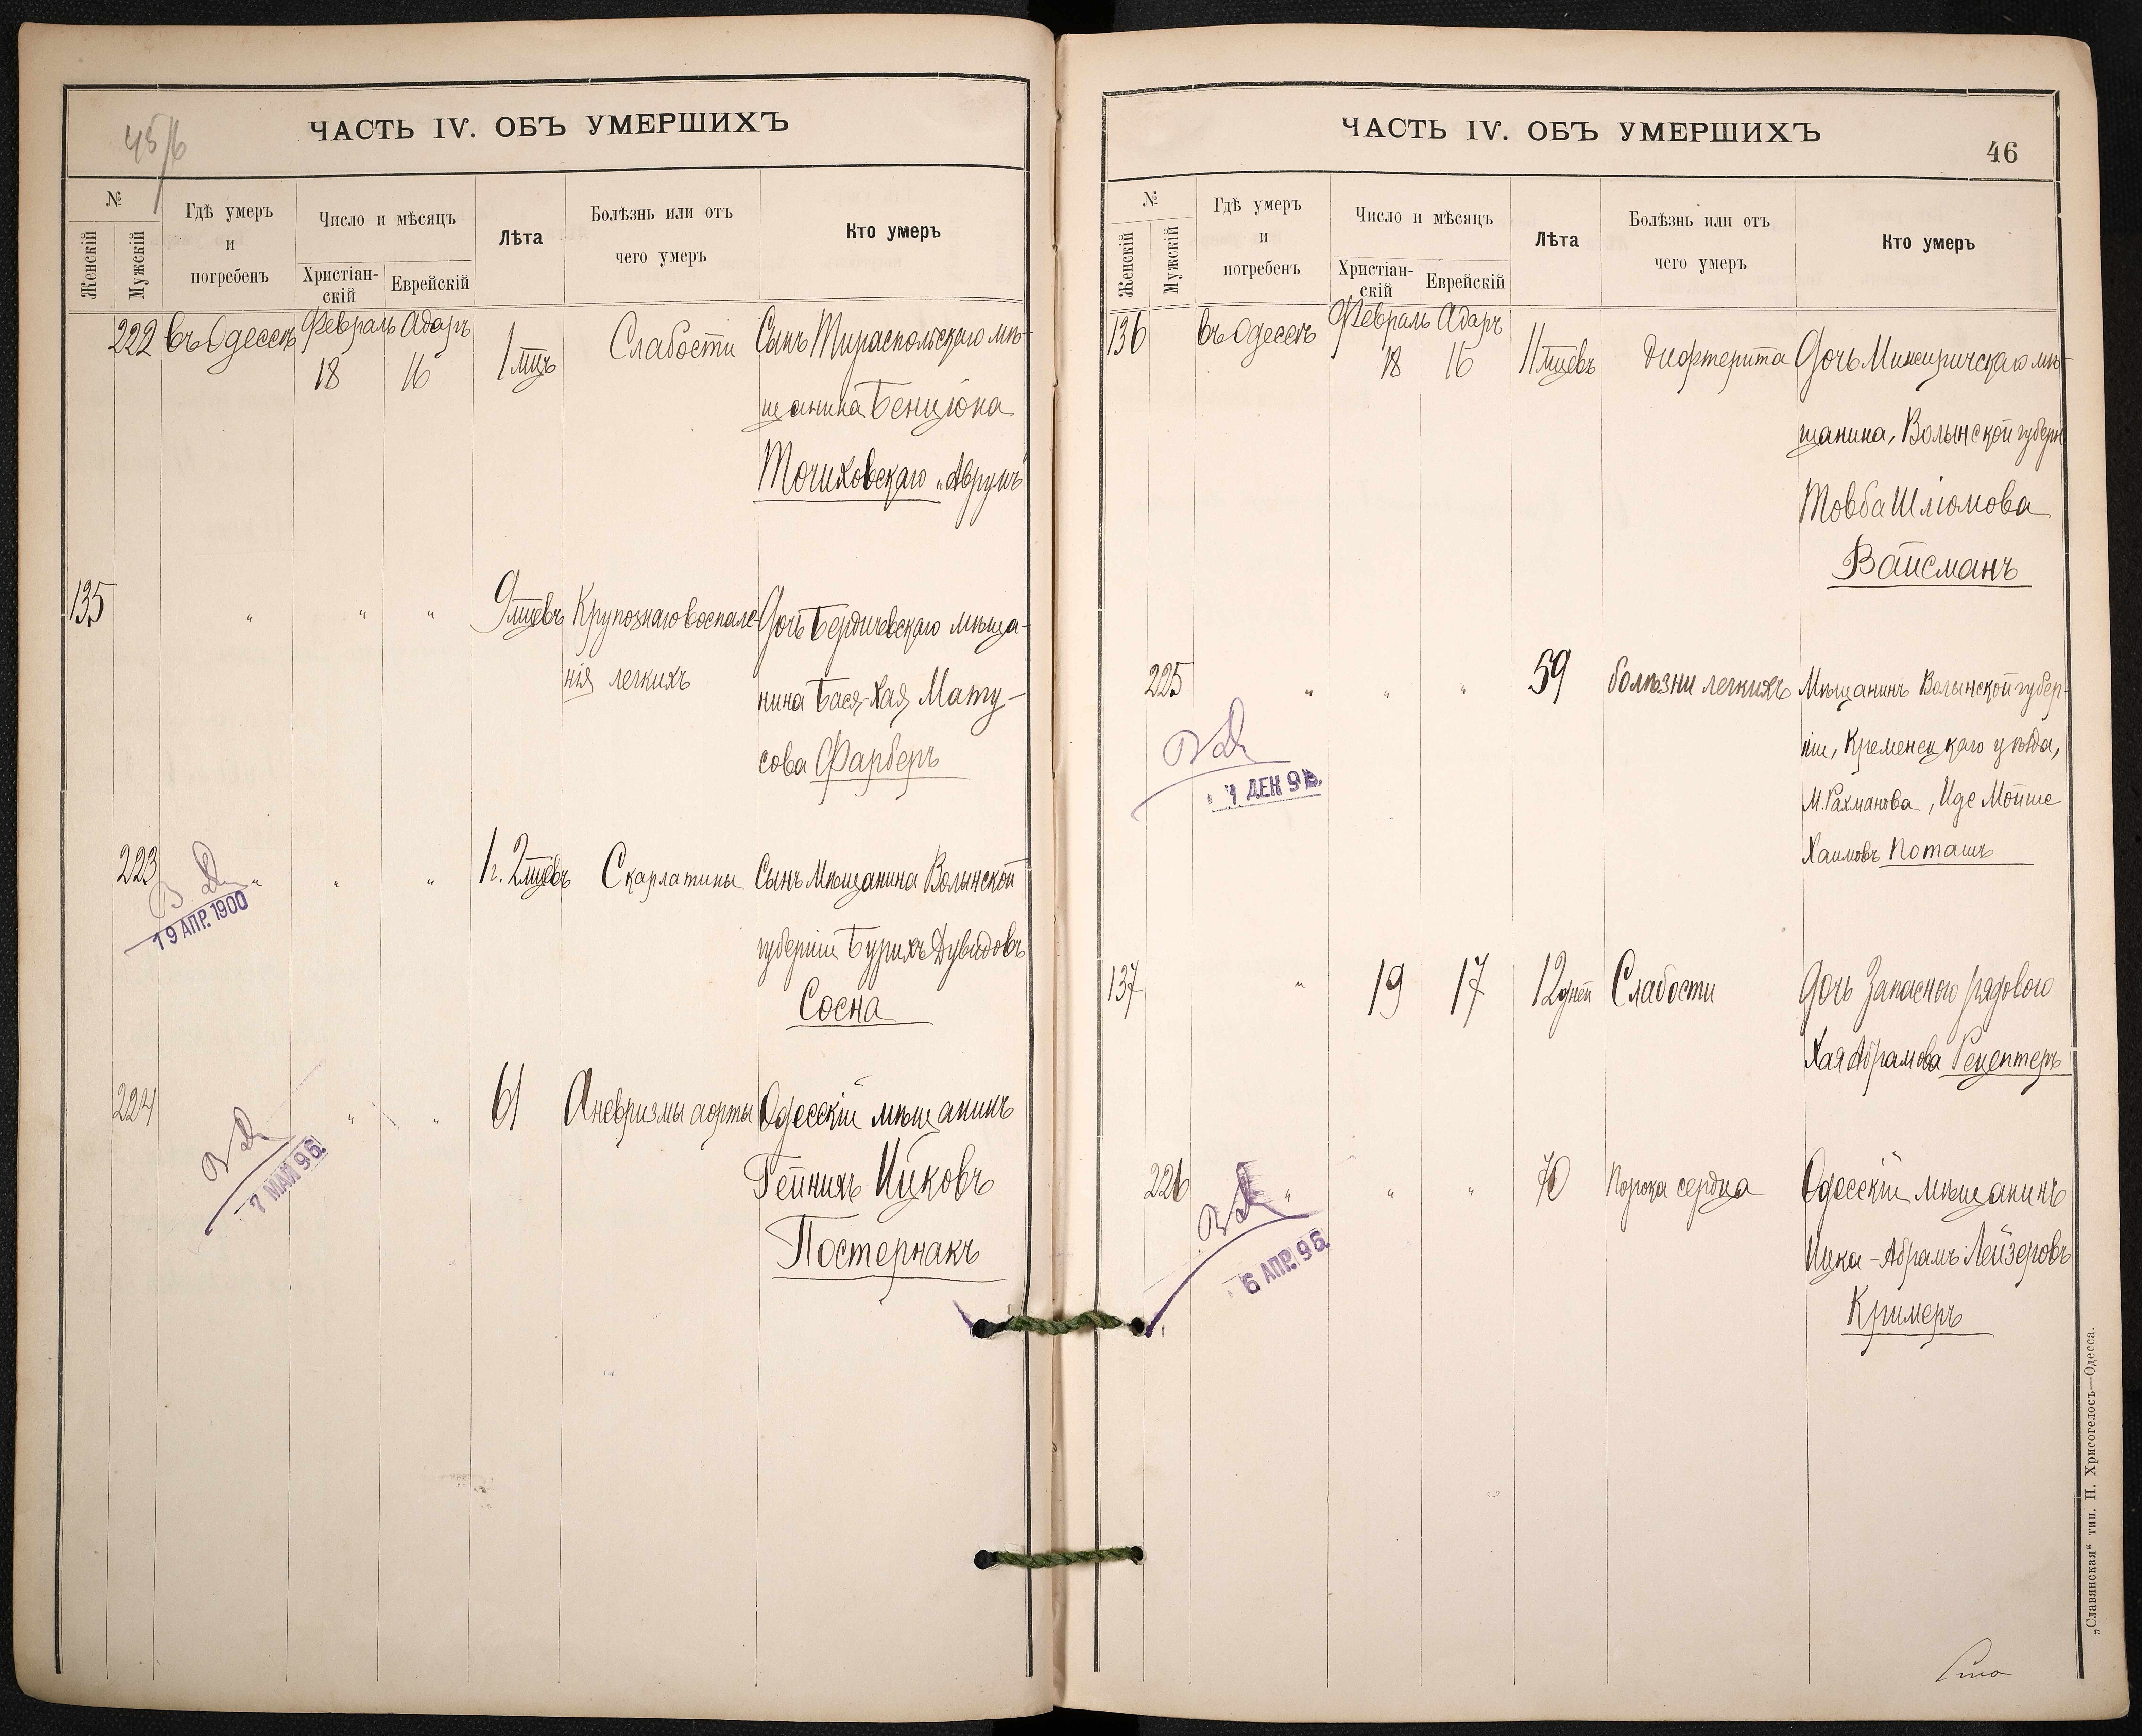 45/6
ЧАСТЬ IV. ОБЪ УМЕРШИХЪ
№
Женскій
Мужскій
Гдѣ умеръ
и
погребенъ
Число и мѣсяцъ
Христіан-
скій
Еврейскій
Лѣта
Болѣзнь или отъ
чего умеръ
Кто умеръ
222 въ Одессѣ Февраль Адаръ 1 мцъ Слабости Сынъ Тираспольскаго мѣ-
18 16
щанина Бенціона
Точиховскаго „Аврумъ"
135 " " " 9 мцевъ Крупознаго воспале- Дочь Бердичевскаго мѣща-
нія легкихъ нина Бася-Хая Мату-
сова Фарберъ
223 " " " 1 г. 2 мцевъ Скарлатины Сынъ Мѣщанина Волынской
19 АПР. 1900
губерніи Бурихъ Дувидовъ
Сосна
224 " " 61 Аневризмы аорты Одесскій мѣщанинъ
7 МАЙ 96.
Гейнихъ Ицковъ
Постернакъ
ЧАСТЬ IV. ОБЪ УМЕРШИХЪ
46
№
Женскій
Мужскій
Гдѣ умеръ
и
погребенъ
Число и мѣсяцъ
Христіан-
скій
Еврейскій
Лѣта
Болѣзнь или отъ
чего умеръ
Кто умеръ
136 въ Одессѣ Февраль Адаръ 11 мцевъ Дифтерита Дочь Межиричскаго мѣ-
18 16
щанина, Волынской губерн
Товба Шліомова
Вайсманъ
225 " " " 59 болѣзни легкихъ Мѣщанинъ Волынской губер-
ніи, Кременецкаго уѣзда,
7 ДЕК 9
М. Рахманова, Иде Мойше
Хаимовъ Поташъ
137 " 19 17 12 дней Слабости Дочь Запасного рядового
Хая Абрамова Рецептеръ
226 " " " 70 Порока сердца Одесскій мѣщанинъ
Ицка-Абрамъ Лейзеровъ
6 АПР. 96.
Кримеръ
„Славянская" тип. Н. Хрисогелосъ—Одесса.